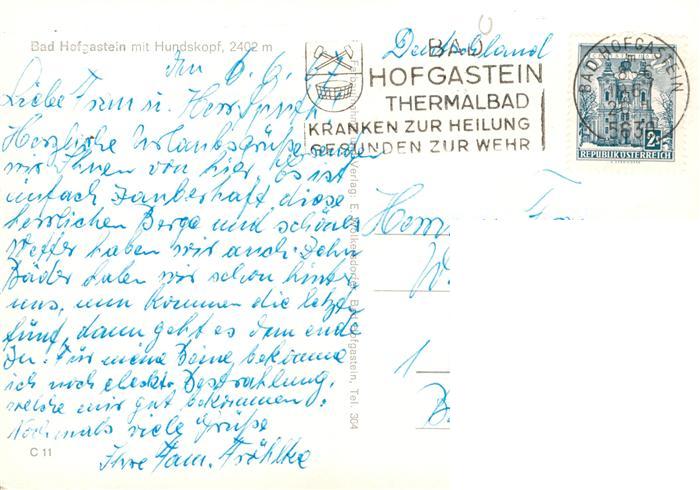 Bad Hofgastein mit Hundskopf, 2402 m
Deutschland
BAD
HOFGASTEIN
THERMALBAD
KRANKEN ZUR HEILUNG
GESUNDEN ZUR WEHR
BAD HOFGASTEIN
5630
2S
REPUBLIK ÖSTERREICH
den 6.9.67
Liebe Frau u. Herr
Herzliche Urlaubsgrüße senden
wir Ihnen von hier, Es ist
einfach Zauberhaft diese
herrlichen Berge und schönes
Wetter haben wir auch. Zehn
Bäder haben wir schon hinter
uns, nun kommen die letzt.
fünf, dann geht es dem ende
zu. Für meine Beine bekomme
ich noch elecktr. Bestrahlung,
welche mir gut bekommen.
Nochmals viele Grüße
Ihre Fam. Fröhlke
C 11
Verlag: E. Wolkersdorfer, Bad Hofgastein, Tel. 304
Herrn
W.
1